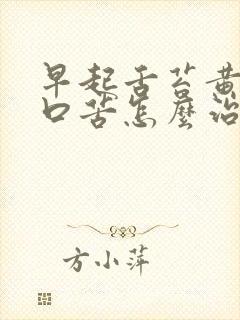 早起舌苔黄
口苦怎麼治
方小萍